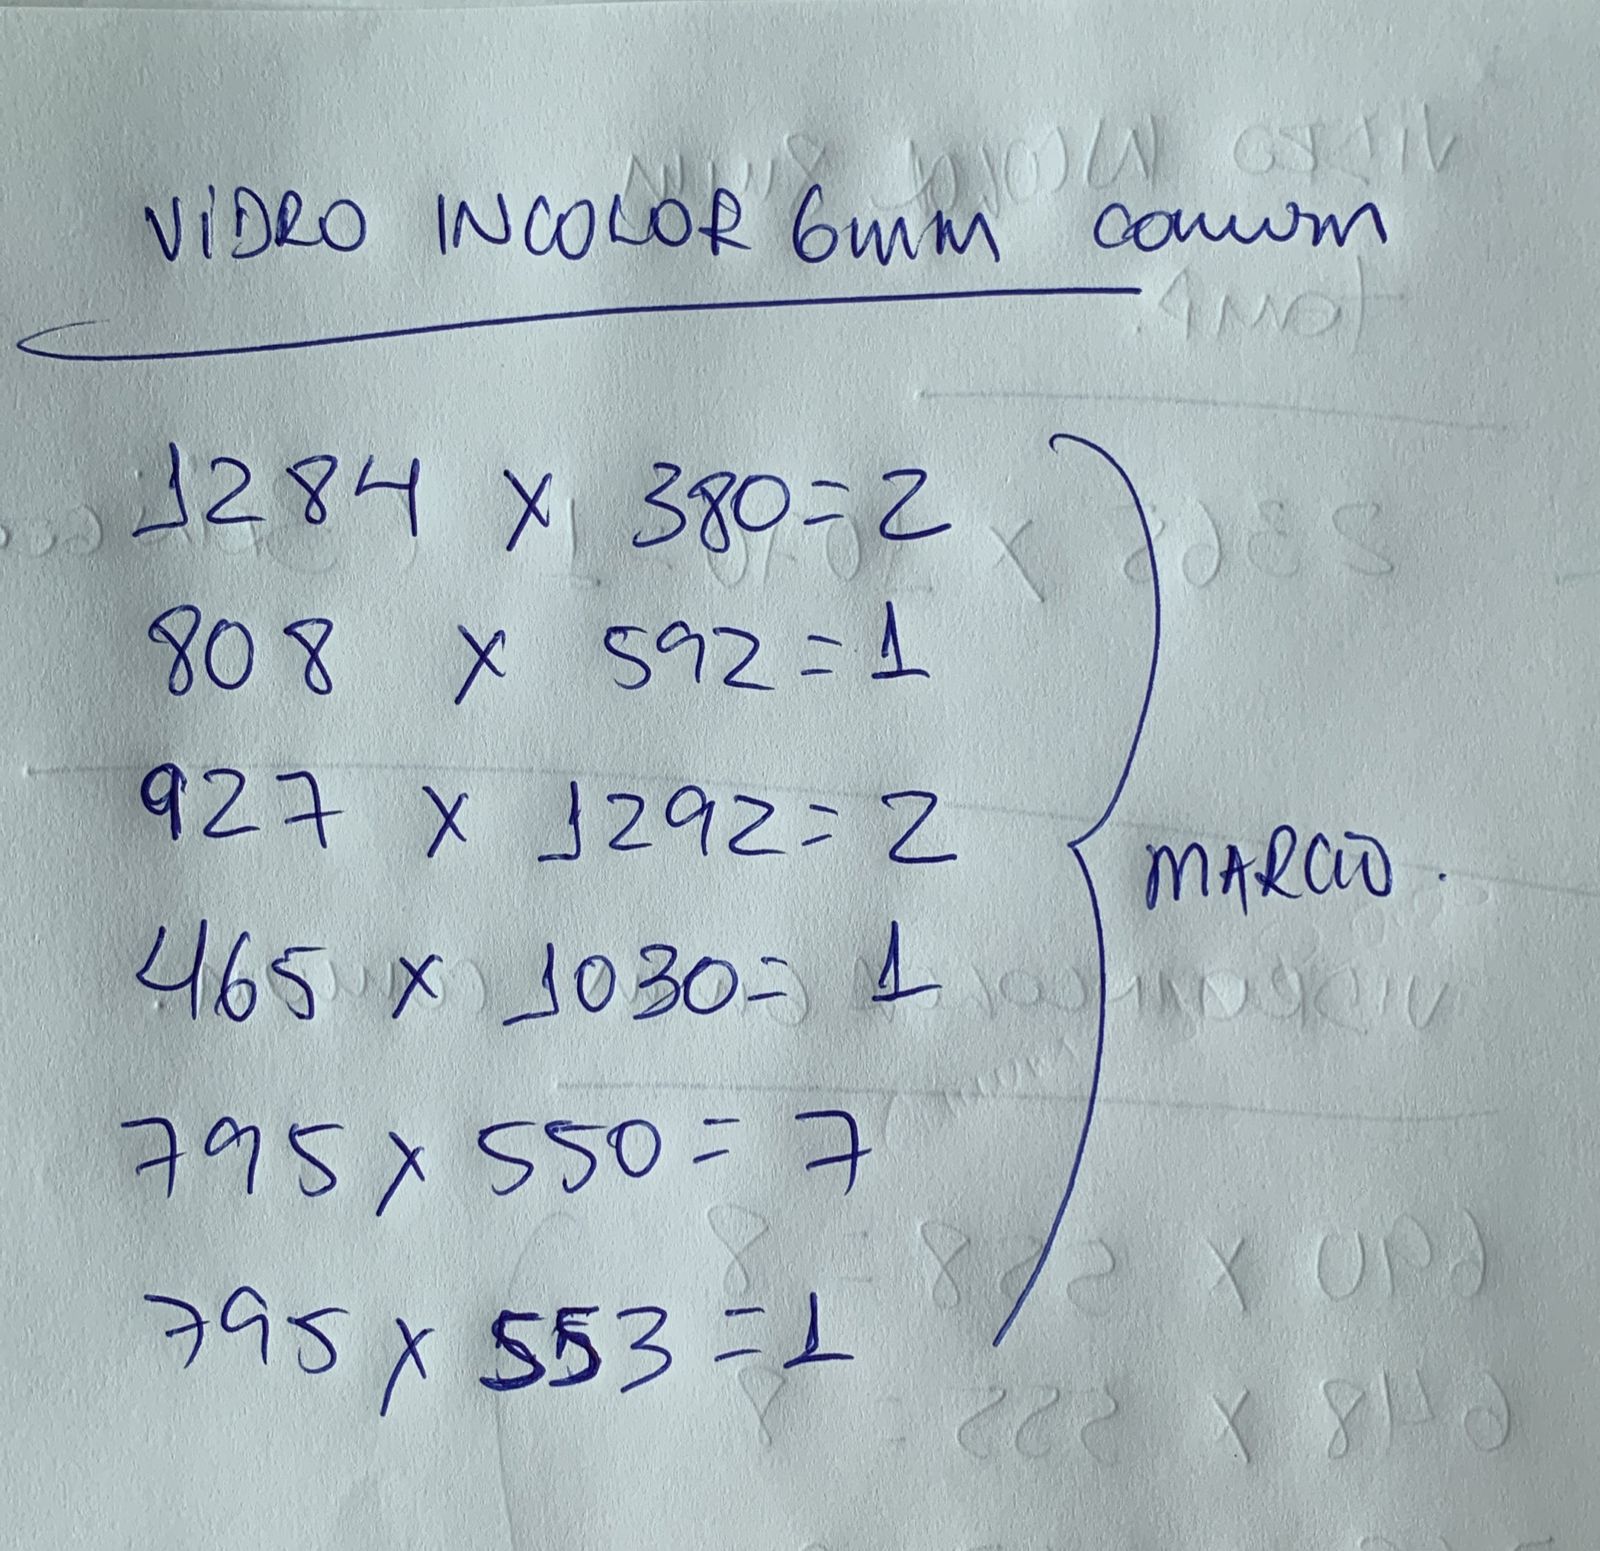 VIDRO INCOLOR 6mm comum
1284 x 380 = 2
808 x 592 = 1
927 x 1292 = 2
465 x 1030 = 1
795 x 550 = 7
795 x 553 = 1
MARCIO.